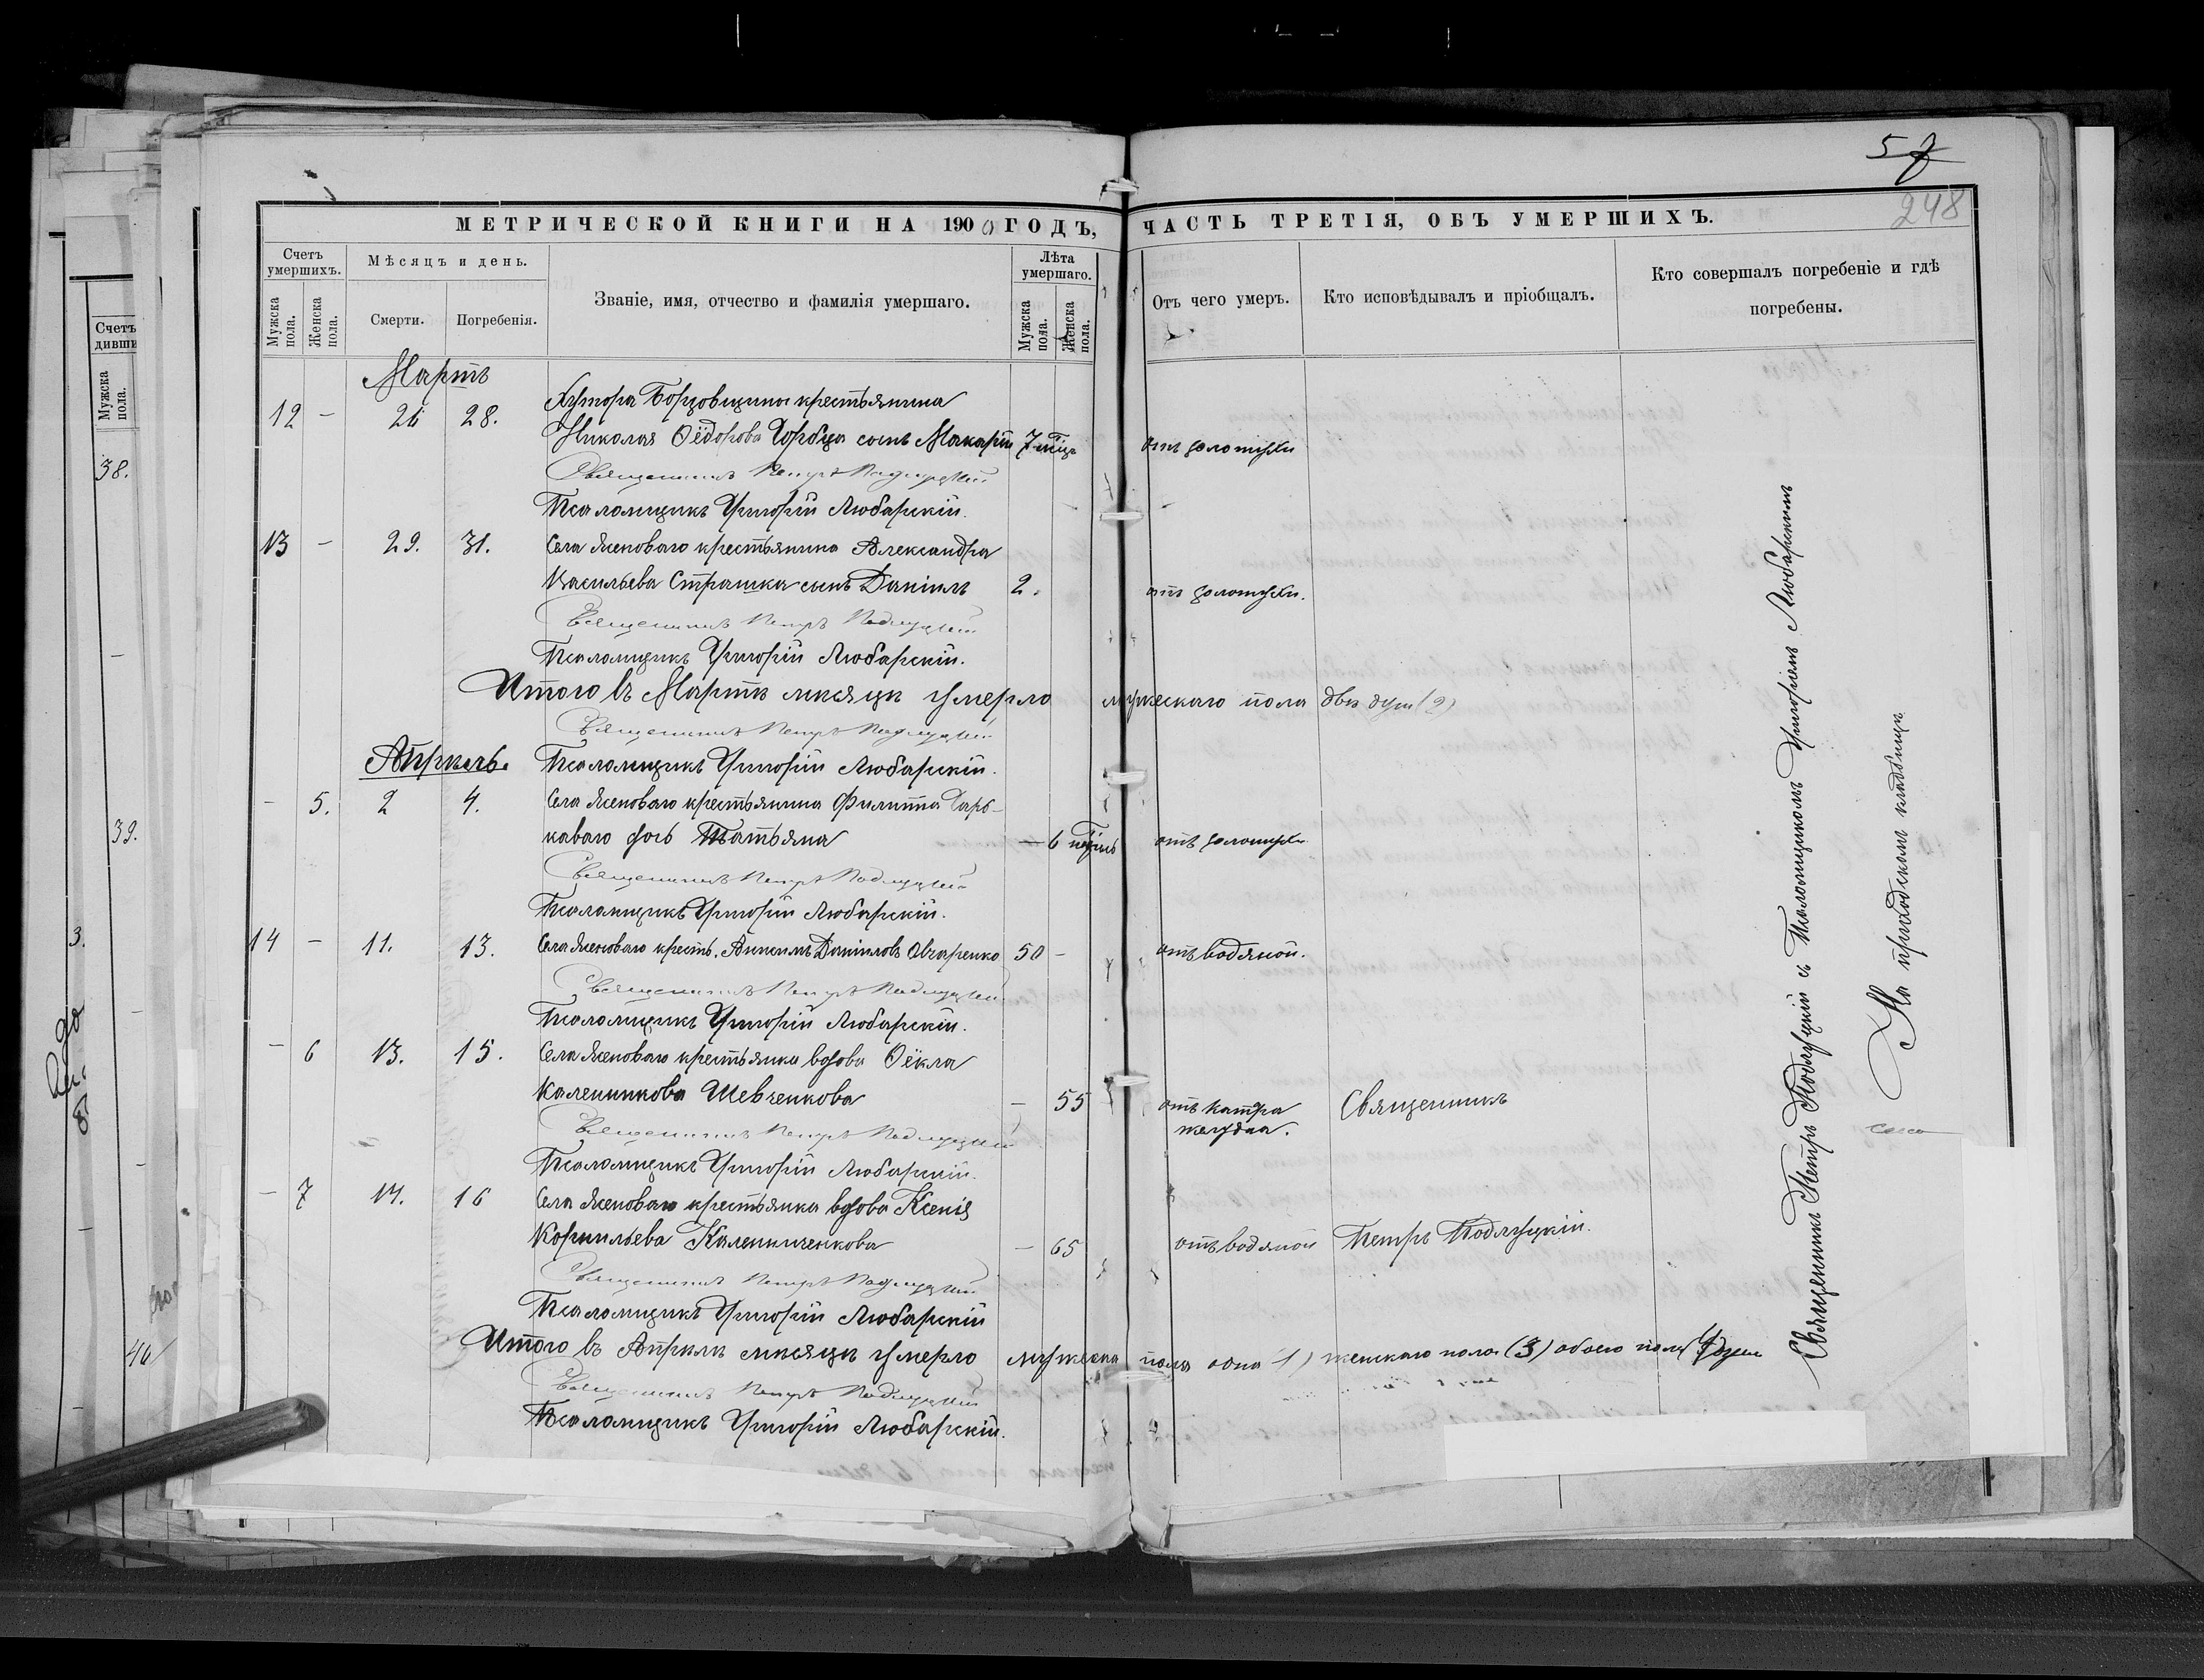 57
248
МЕТРИЧЕСКОЙ КНИГИ НА 1900 ГОДЪ, ЧАСТЬ ТРЕТІЯ, ОБЪ УМЕРШИХЪ.
Счетъ умершихъ.
Мужска пола.
Женска пола.
Мѣсяцъ и день.
Смерти.
Погребенія.
Званіе, имя, отчество и фамилія умершаго.
Лѣта умершаго.
Мужска пола.
Женска пола.
Отъ чего умеръ.
Кто исповѣдывалъ и пріобщалъ.
Кто совершалъ погребеніе и гдѣ погребены.
Мартъ
12 - 26 28. Хутора Борцовщины крестьянина
Николая Ѳёдорова Горобца сынъ Макарій 7 мѣц отъ золотухи
Священникъ Петръ Подлуцкій
Псаломщикъ Григорій Любарскій.
13 - 29. 31. Села Ясеноваго крестьянина Александра
Васильева Страшка сынъ Даніилъ 2. отъ золотухи.
Священникъ Петръ Подлуцкій
Псаломщикъ Григорій Любарскій.
Итого въ Мартѣ мѣсяцѣ умерло мужескаго пола двѣ душ (2)
Священникъ Петръ Подлуцкій
Апрѣль. Псаломщикъ Григорій Любарскій.
- 5. 2 4. Села Ясеноваго крестьянина Филиппа Харь-
каваго дочь Татьяна - 6 недѣль отъ золотухи
Священникъ Петръ Подлуцкій
Псаломщикъ Григорій Любарскій.
14 - 11. 13. Села Ясеноваго крестъ. Анисимъ Даніиловъ Овчаренко 50 - отъ водяной.
Священникъ Петръ Подлуцкій
Псаломщикъ Григорій Любарскій.
- 6 13. 15. Села Ясеноваго крестьянка вдова Ѳёкла
Каленикова Шевченкова - 55 отъ катра Священникъ
желудка.
Священникъ Петръ Подлуцкій
Псаломщикъ Григорій Любарскій.
- 7 14. 16 Села Ясеноваго крестьянка вдова Ксенія
Корнильева Каленниченкова - 65 отъ водяной Петръ Подлуцкій.
Священникъ Петръ Подлуцкій
Псаломщикъ Григорій Любарскій
Итого въ Апрѣлѣ мѣсяцѣ умерло мужеска пола одна 1) женскаго пола (3) обоего пола 4 душ
Священникъ Петръ Подлуцкій
Псаломщикъ Григорій Любарскій.
Священникъ Петръ Подлуцкій съ Псаломщикомъ Григоріемъ Любарскимъ
На приходскомъ кладбищѣ
Счетъ
дивши
Мужска пола.
38.
39.
3.
40